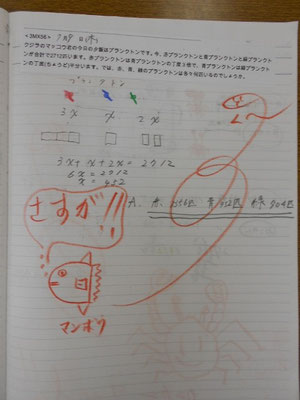 <3MX56>
クジラのマッコウ君の今日の夕飯はプランクトンです。今、赤プランクトンと青プランクトンと緑プランクト
ンが合計で2712匹います。赤プランクトンは青プランクトンの丁度3倍で、青プランクトンは緑プランクト
ンの丁度(ちょうど)半分います。では、赤、青、緑のプランクトンは各々何匹いるのでしょうか。
プランクトン
3x x 2x
3x+x+2x=2712
6x=2712
x=452
A. 赤 1356匹 青 452匹 緑 904匹
さすが!!
マンボウ